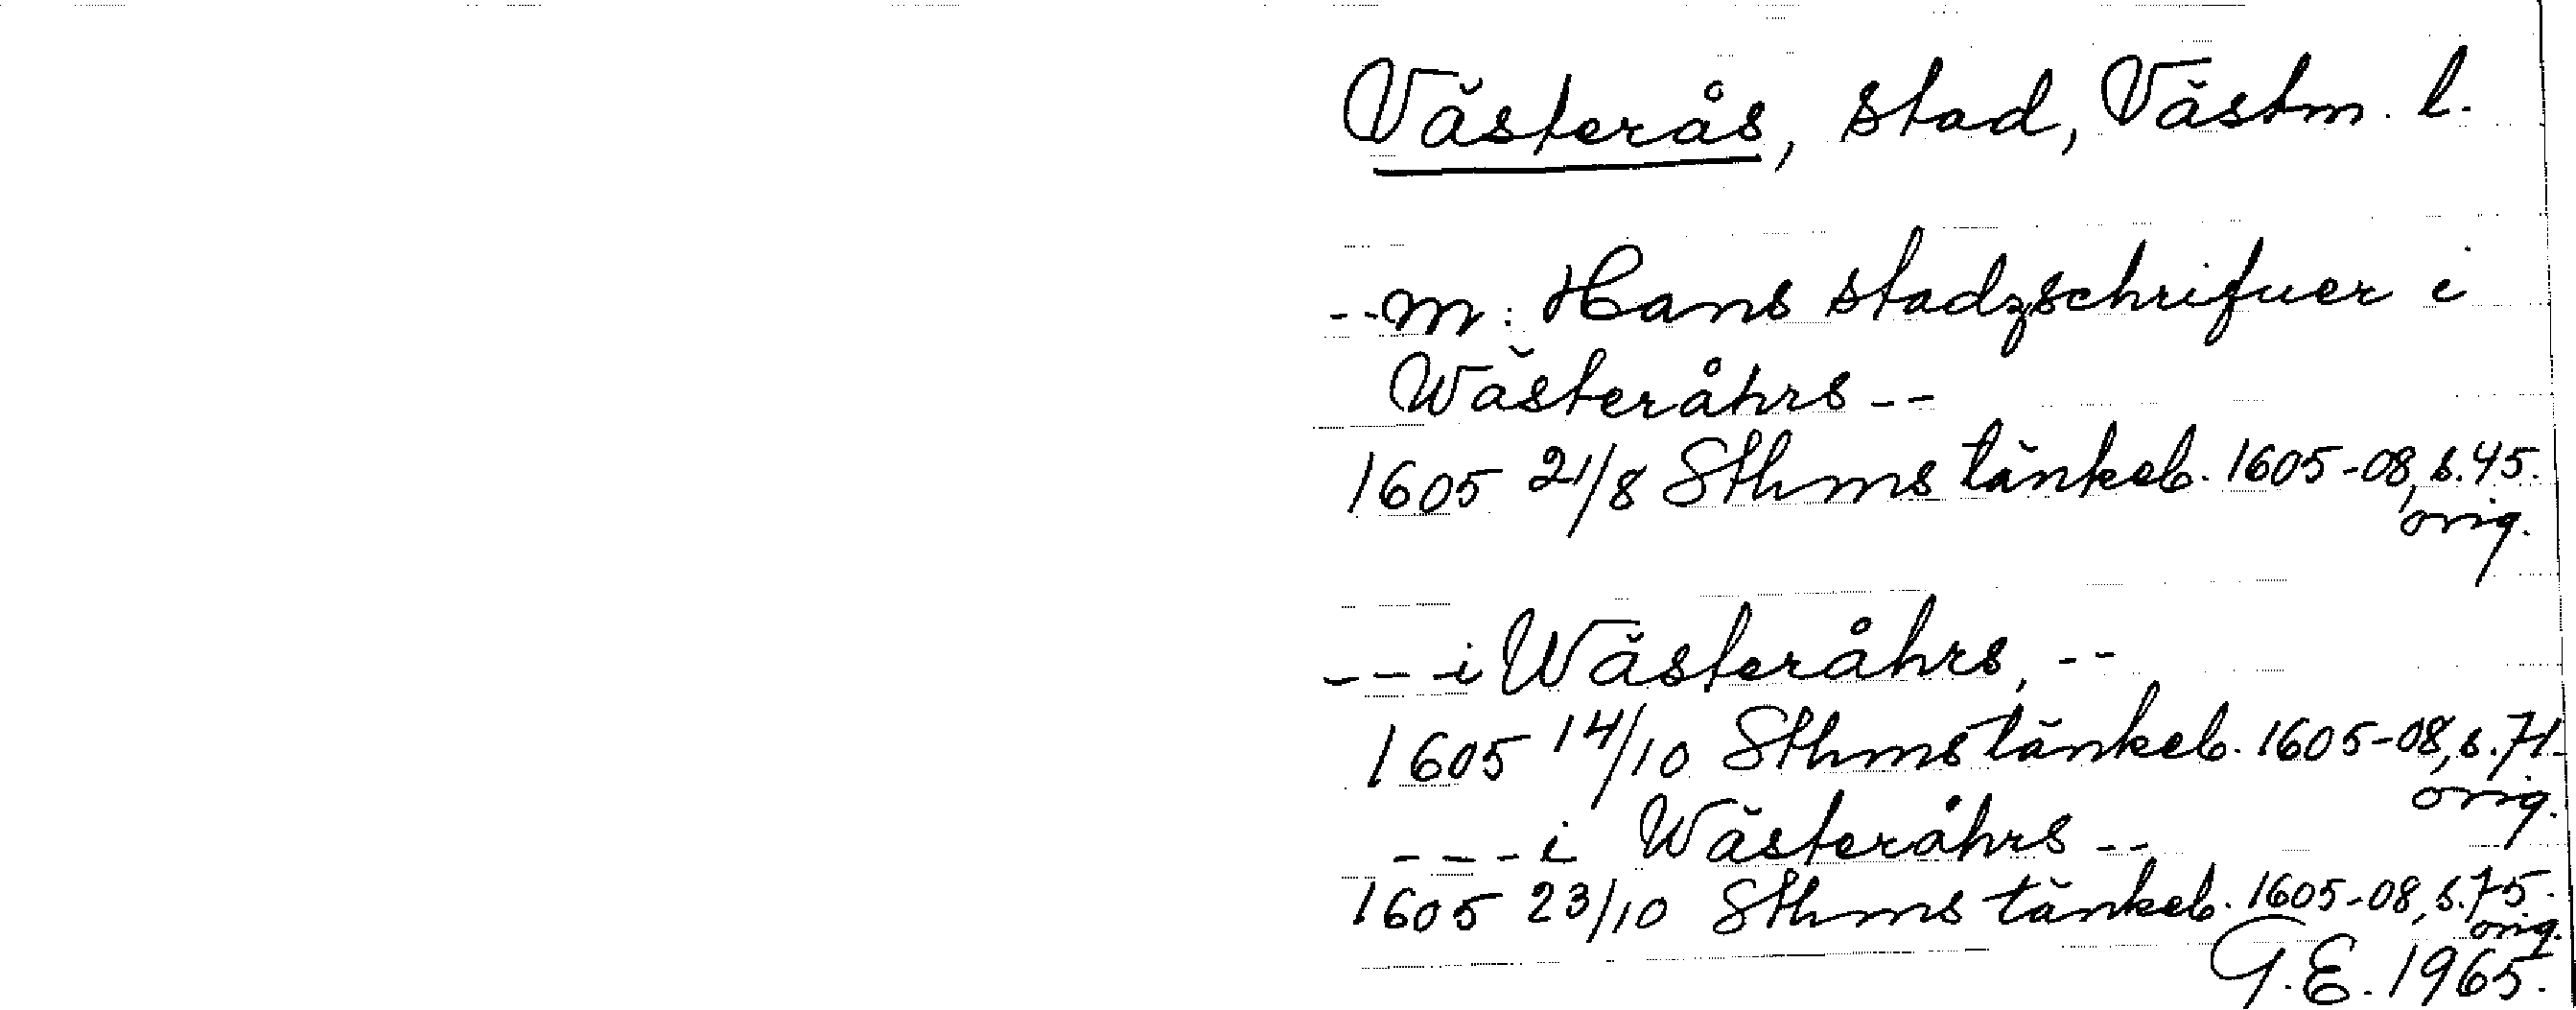 Västerås, stad, Västm. l.
--m: Hans stadzschrifuer i
Wästeråhrs--
1605 21/8 Sthms tänkeb. 1605-08, s.45.
orig.
---i Wästeråhrs, --
1605 14/10 Sthms tänkeb. 1605-08, s.71.
orig.
---i Wästeråhrs--
1605 23/10 Sthms tänkeb. 1605-08, s.75.
orig.
G.E. 1965.